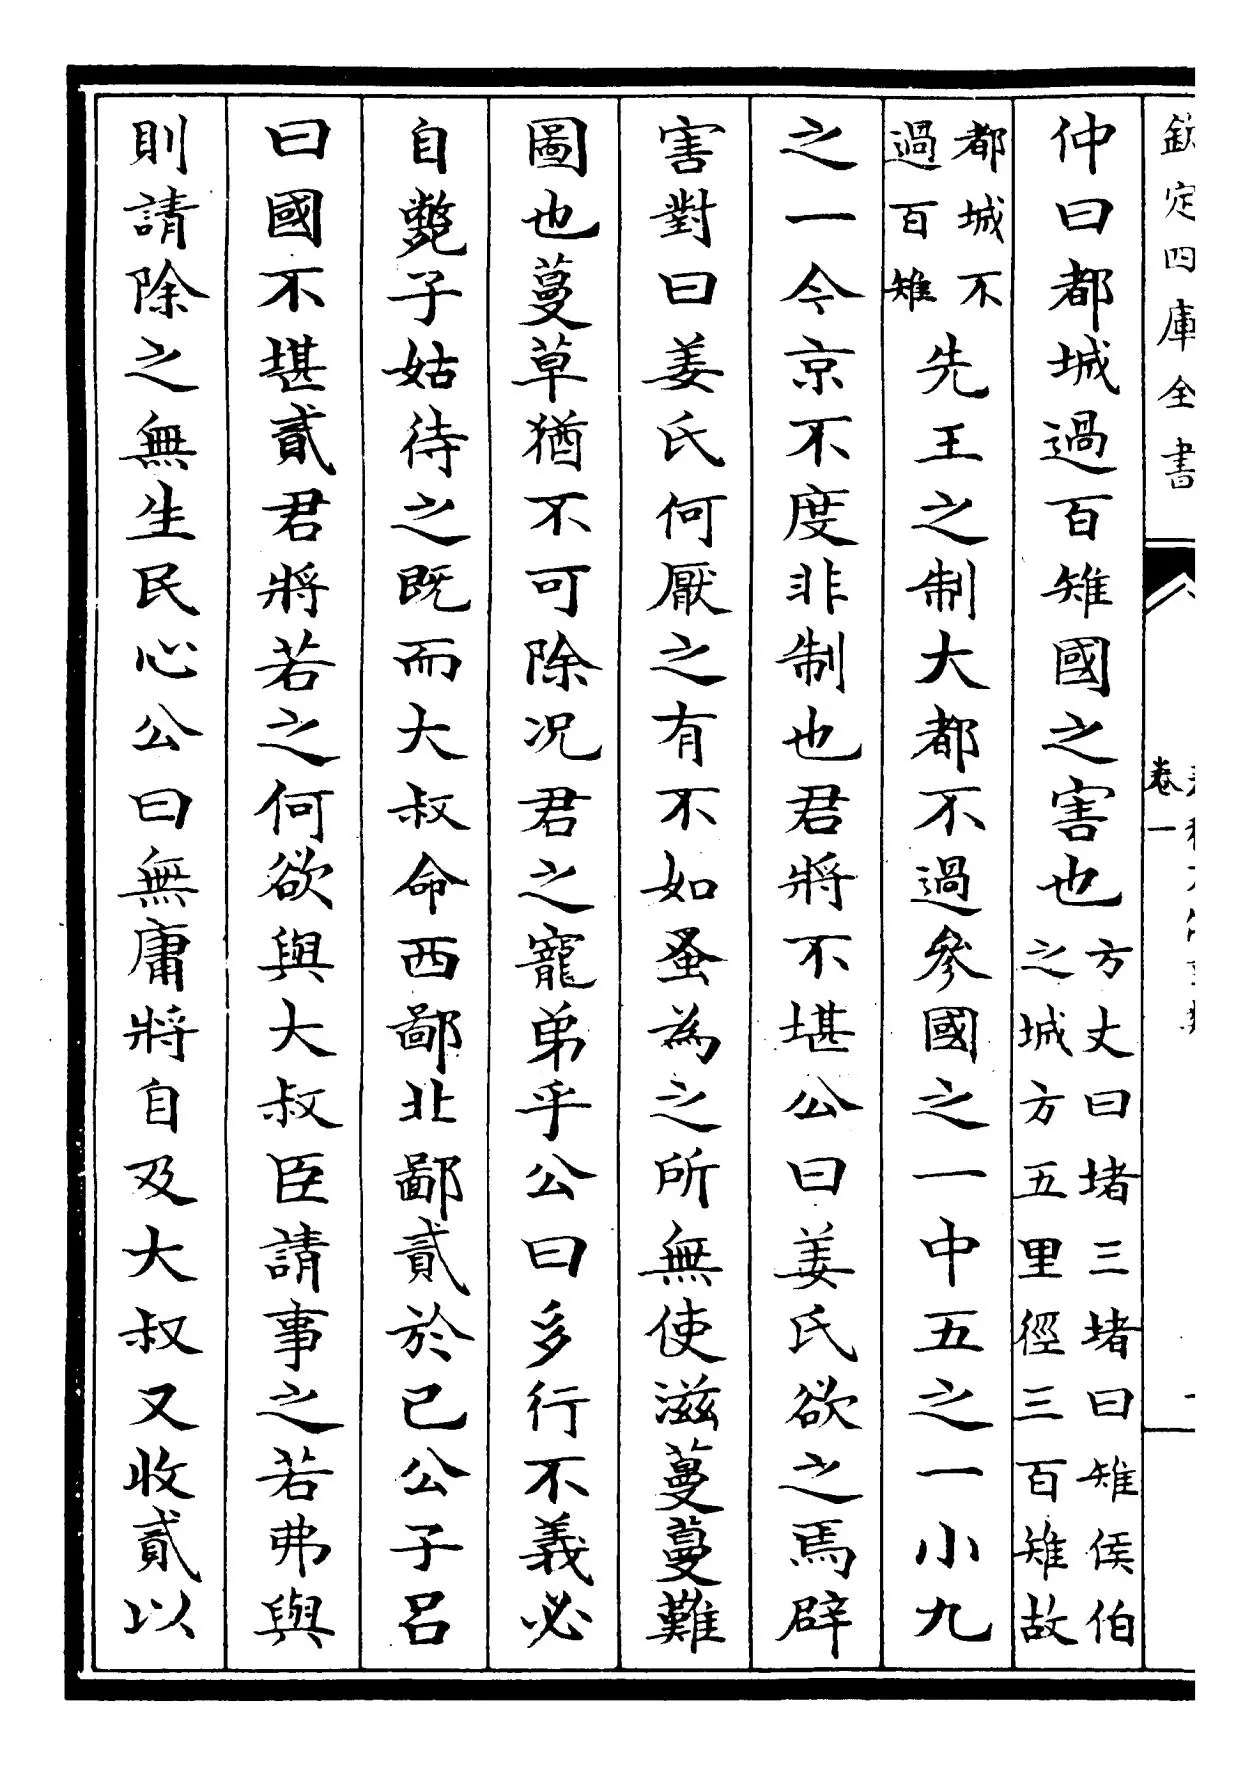 欽定四庫全書
卷一
仲曰都城過百雉國之害也方丈曰堵三堵曰雉侯伯之城方五里徑三百雉故
都城不過百雉先王之制大都不過參國之一中五之一小九
之一今京不度非制也君將不堪公曰姜氏欲之焉辟
害對曰姜氏何厭之有不如蚤為之所無使滋蔓蔓難
圖也蔓草猶不可除况君之寵弟乎公曰多行不義必
自斃子姑待之既而大叔命西鄙北鄙貳於已公子吕
曰國不堪貳君將若之何欲與大叔臣請事之若弗與
則請除之無生民心公曰無庸將自及大叔又收貳以